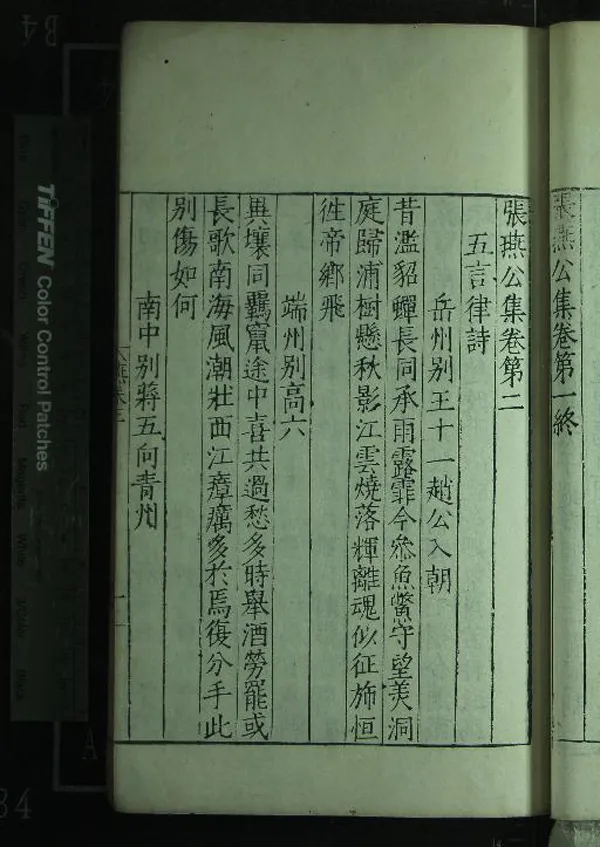 張燕公集卷第一終
張燕公集卷第二
五言律詩
岳州别王十一趙公入朝
昔濫貂蟬長同承雨露霏今叅魚鱉守望美洞
庭歸浦樹懸秋影江雲燒落輝離魂似征斾恒
徃帝鄉飛
端州别高六
異壤同羈竄途中喜共過愁多時舉酒勞罷或
長歌南海風潮壯西江瘴癘多於焉復分手此
别傷如何
南中别蔣五向青州
TIFFEN Color Control Patches
B4
A
84